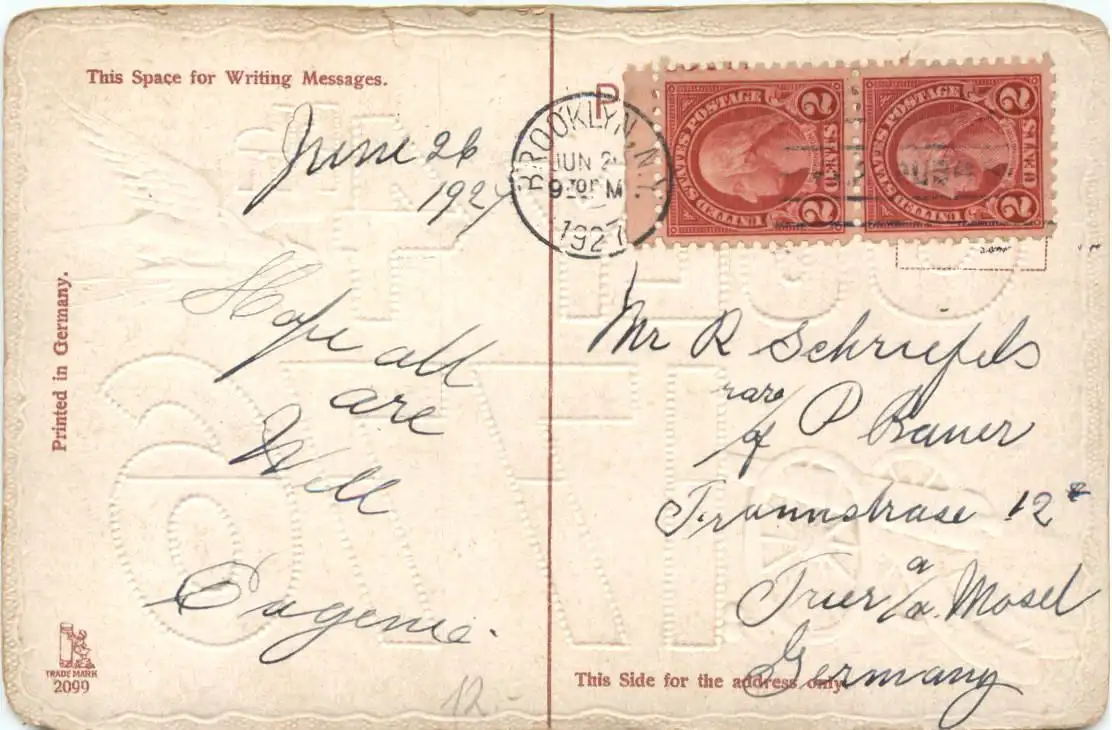 This Space for Writing Messages.
June 26
1927
Hope all
are
Well
Eugenie.
Printed in Germany.
TRADE MARK
2099
12.-
P
BROOKLYN, N.Y.
JUN 2
9 PM
1927
UNITED STATES POSTAGE
2 CENTS 2
UNITED STATES POSTAGE
2 CENTS 2
Mr R Schriefels
of P Bauer
12
Trier a/d. Mosel
Germany
This Side for the address only.